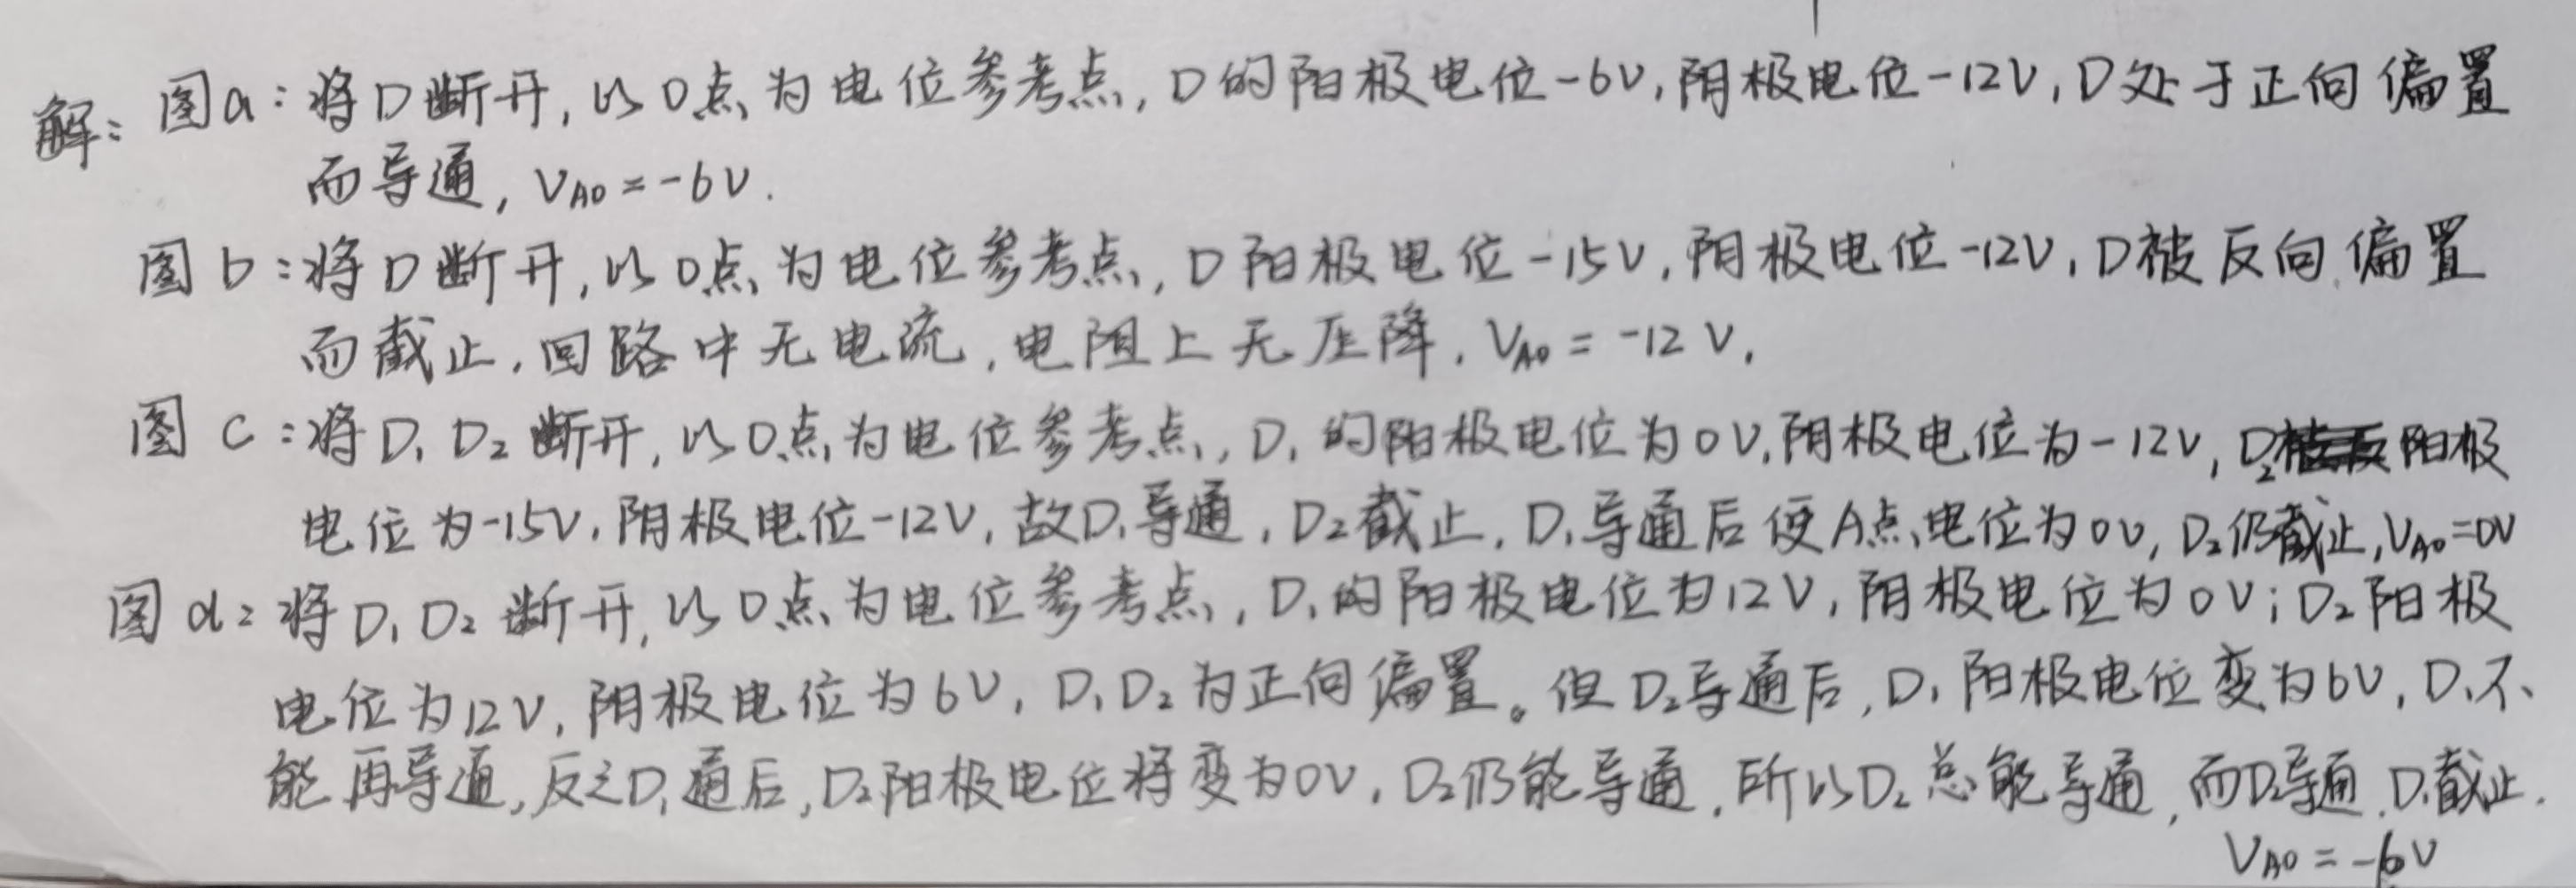 解: 图a: 将D断开, 以O点为电位参考点, D的阳极电位-6V, 阴极电位-12V, D处于正向偏置
而导通, VAO=-6V.
图b: 将D断开, 以O点为电位参考点, D阳极电位-15V, 阴极电位-12V, D被反向偏置
而截止, 回路中无电流, 电阻上无压降, VAO=-12V.
图c: 将D1D2断开, 以O点为电位参考点, D1的阳极电位为0V, 阴极电位为-12V, D2阳极
电位为-15V, 阴极电位-12V, 故D1导通, D2截止, D1导通后使A点电位为0V, D2仍截止, VAO=0V
图d: 将D1D2断开, 以O点为电位参考点, D1的阳极电位为12V, 阴极电位为0V; D2阳极
电位为12V, 阴极电位为6V, D1D2为正向偏置。但D2导通后, D1阳极电位变为6V, D1不
能再导通, 反之D1通后, D2阳极电位将变为0V, D2仍能导通, 所以D2总能导通, 而D2导通, D1截止.
VAO=-6V